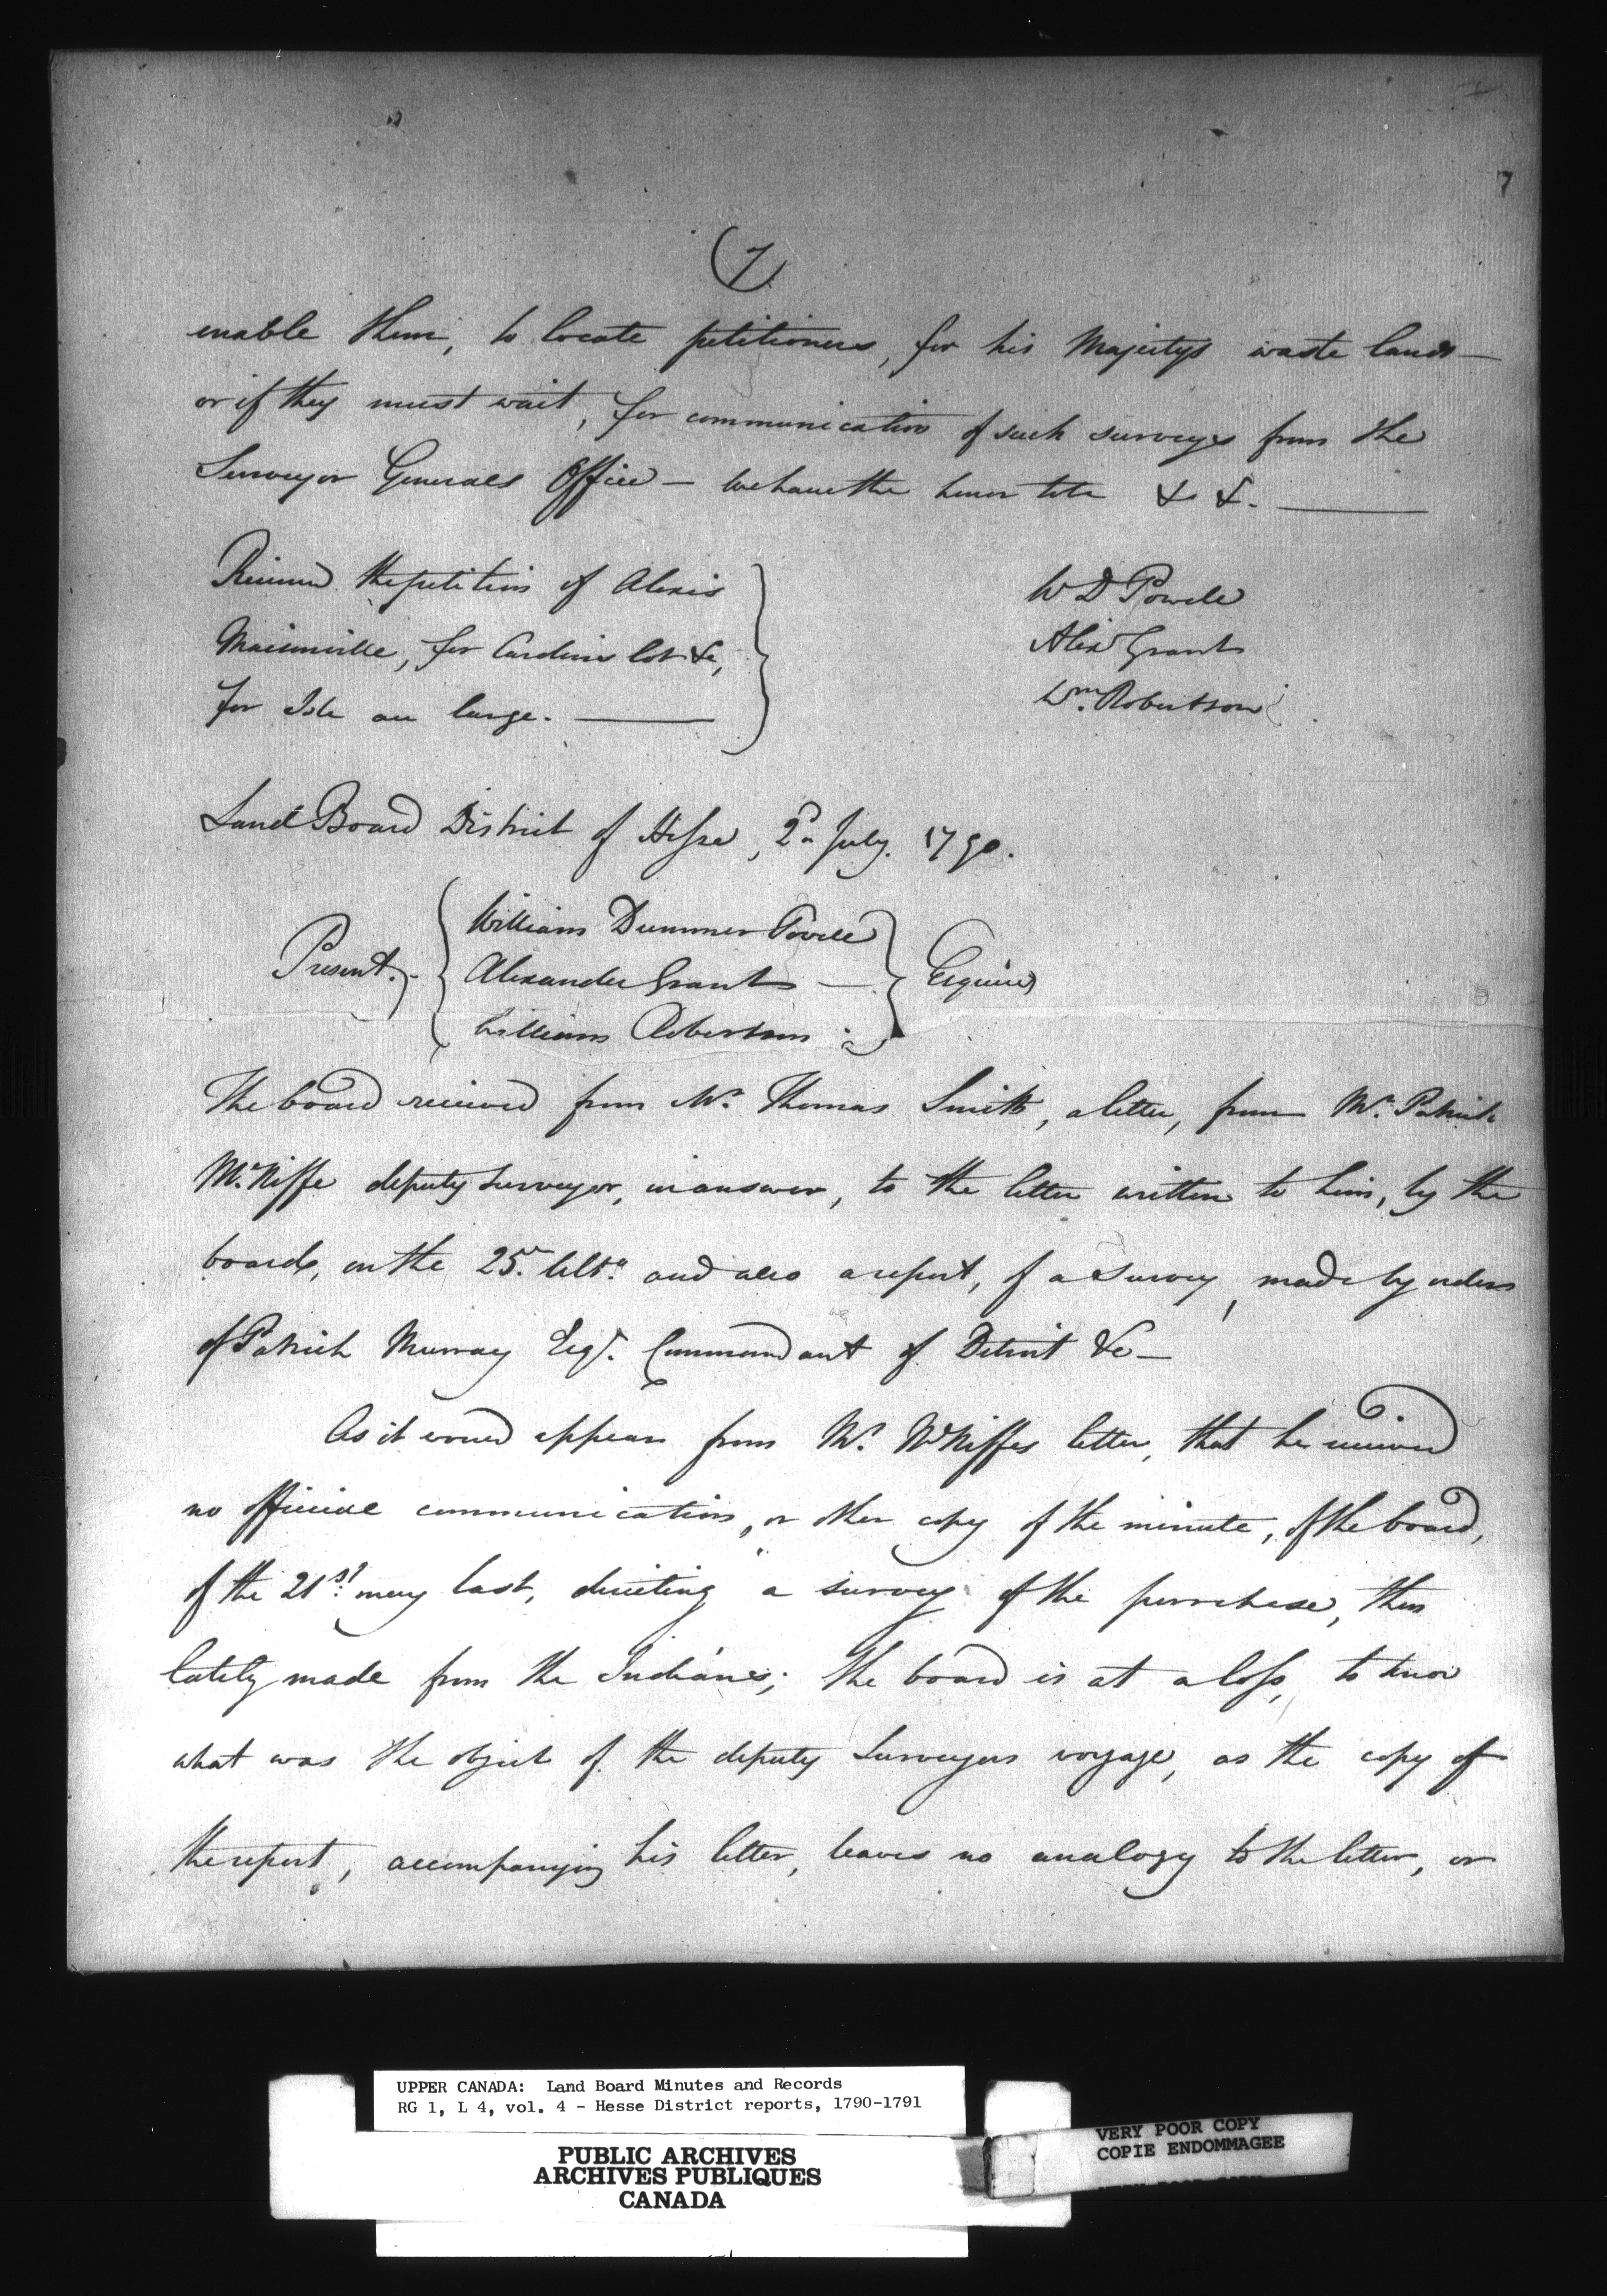 7
(7)
enable them, to locate petitioners, for his Majestys waste lands —
or if they must wait, for communication of such surveys from the
Surveyor Generals Office — We have the honor to be &c &c. —
Received the petition of Alexis
Maisonville, for Cardinis lot &c,
for Isle au large. —
W D Powell
Alexr Grant
Wm. Robertson
Land Board District of Hesse, 2d July. 1790.
Present. William Dummer Powell
Alexander Grant — Esquires
William Robertson
The board received from Mr. Thomas Smith, a letter, from Mr. Patrick
McNiffe deputy surveyor, in answer, to the letter written to him, by the
board, on the 25th. Ulto. and also a report, of a survey, made by orders
of Patrick Murray Esqr. Commandant of Detroit &c —
As it would appear from Mr. McNiffes letter, that he received
no official communication, or other copy of the minute, of the board,
of the 21st. may last, directing a survey of the purchase, then
lately made from the Indians; the board is at a loss, to know
what was the object of the deputy Surveyors voyage, as the copy of
the report, accompanying his letter, leaves no analogy to the letter, or
UPPER CANADA: Land Board Minutes and Records
RG 1, L 4, vol. 4 - Hesse District reports, 1790-1791
PUBLIC ARCHIVES
ARCHIVES PUBLIQUES
CANADA
VERY POOR COPY
COPIE ENDOMMAGEE